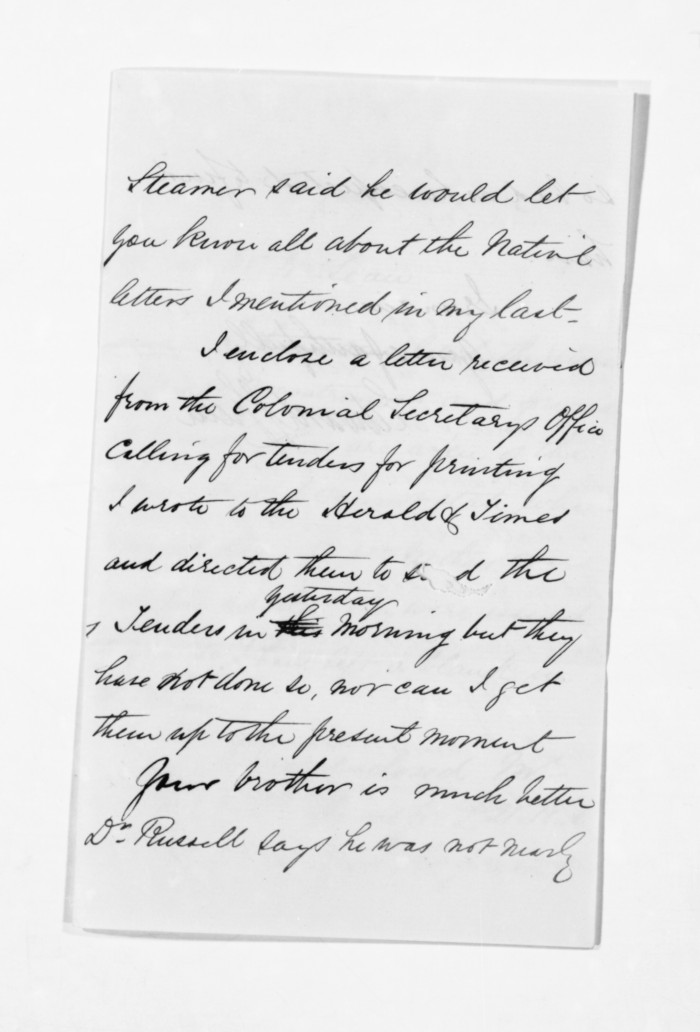 Steamer said he would let
you know all about the Native
letters I mentioned in my last_
I enclose a letter received
from the Colonial Secretarys Office
Calling for tenders for printing
I wrote to the Herald & Times
and directed them to s d the
yesterday
Tenders in this morning but they
have not done so, nor can I get
them up to the present moment
Your brother is much better
Dr. Russell says he was not nearly